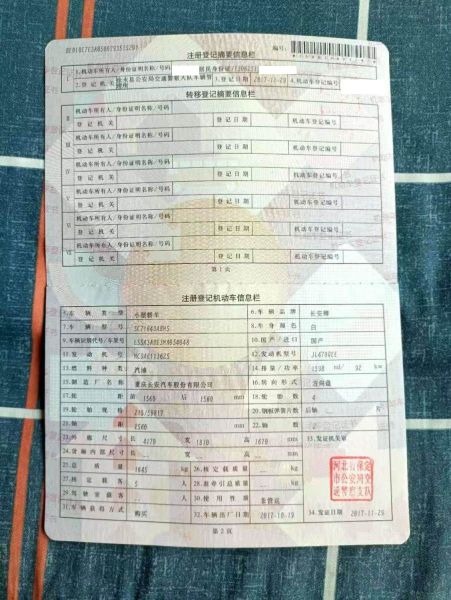 注册登记摘要信息栏
1.机动车所有人/身份证明名称/号码 居民身份证/
2.登记机关 3.登记日期 2017-11-29 4.机动车登记编号
转移登记摘要信息栏
Ⅲ 机动车所有人/身份证明名称/号码
登记机关 登记日期 机动车登记编号
Ⅳ 机动车所有人/身份证明名称/号码
登记机关 登记日期 机动车登记编号
Ⅴ 机动车所有人/身份证明名称/号码
登记机关 登记日期 机动车登记编号
Ⅵ 机动车所有人/身份证明名称/号码
登记机关 登记日期 机动车登记编号
Ⅶ 机动车所有人/身份证明名称/号码
登记机关 登记日期 机动车登记编号
第1页
注册登记机动车信息栏
5.车辆类型 小型轿车 6.车辆品牌 长安牌
7.车辆型号 8.车身颜色 白
9.车辆识别代号/车架号 10.国产/进口 国产
11.发动机号 12.发动机型号
13.燃料种类 汽油 14.排量/功率 1598 ml/ 92 kw
15.制造厂名称 重庆长安汽车股份有限公司 16.转向形式 方向盘
17.轮距 前 1560 后 1560 mm 18.轮胎数 4
19.轮胎规格 20.钢板弹簧片数 后轴 -- 片
21.轴距 2560 mm 22.轴数 2
23.外廓尺寸 长 4170 宽 1810 高 1670 mm 33.发证机关章
24.货厢内部尺寸 长 -- 宽 -- 高 -- mm
25.总质量 1645 kg 26.核定载质量 -- kg
27.核定载客 5 人 28.准牵引总质量 -- kg
29.驾驶室载客 -- 人 30.使用性质 非营运
31.车辆获得方式 购买 32.车辆出厂日期 2017-10-19 34.发证日期 2017-11-29
第2页